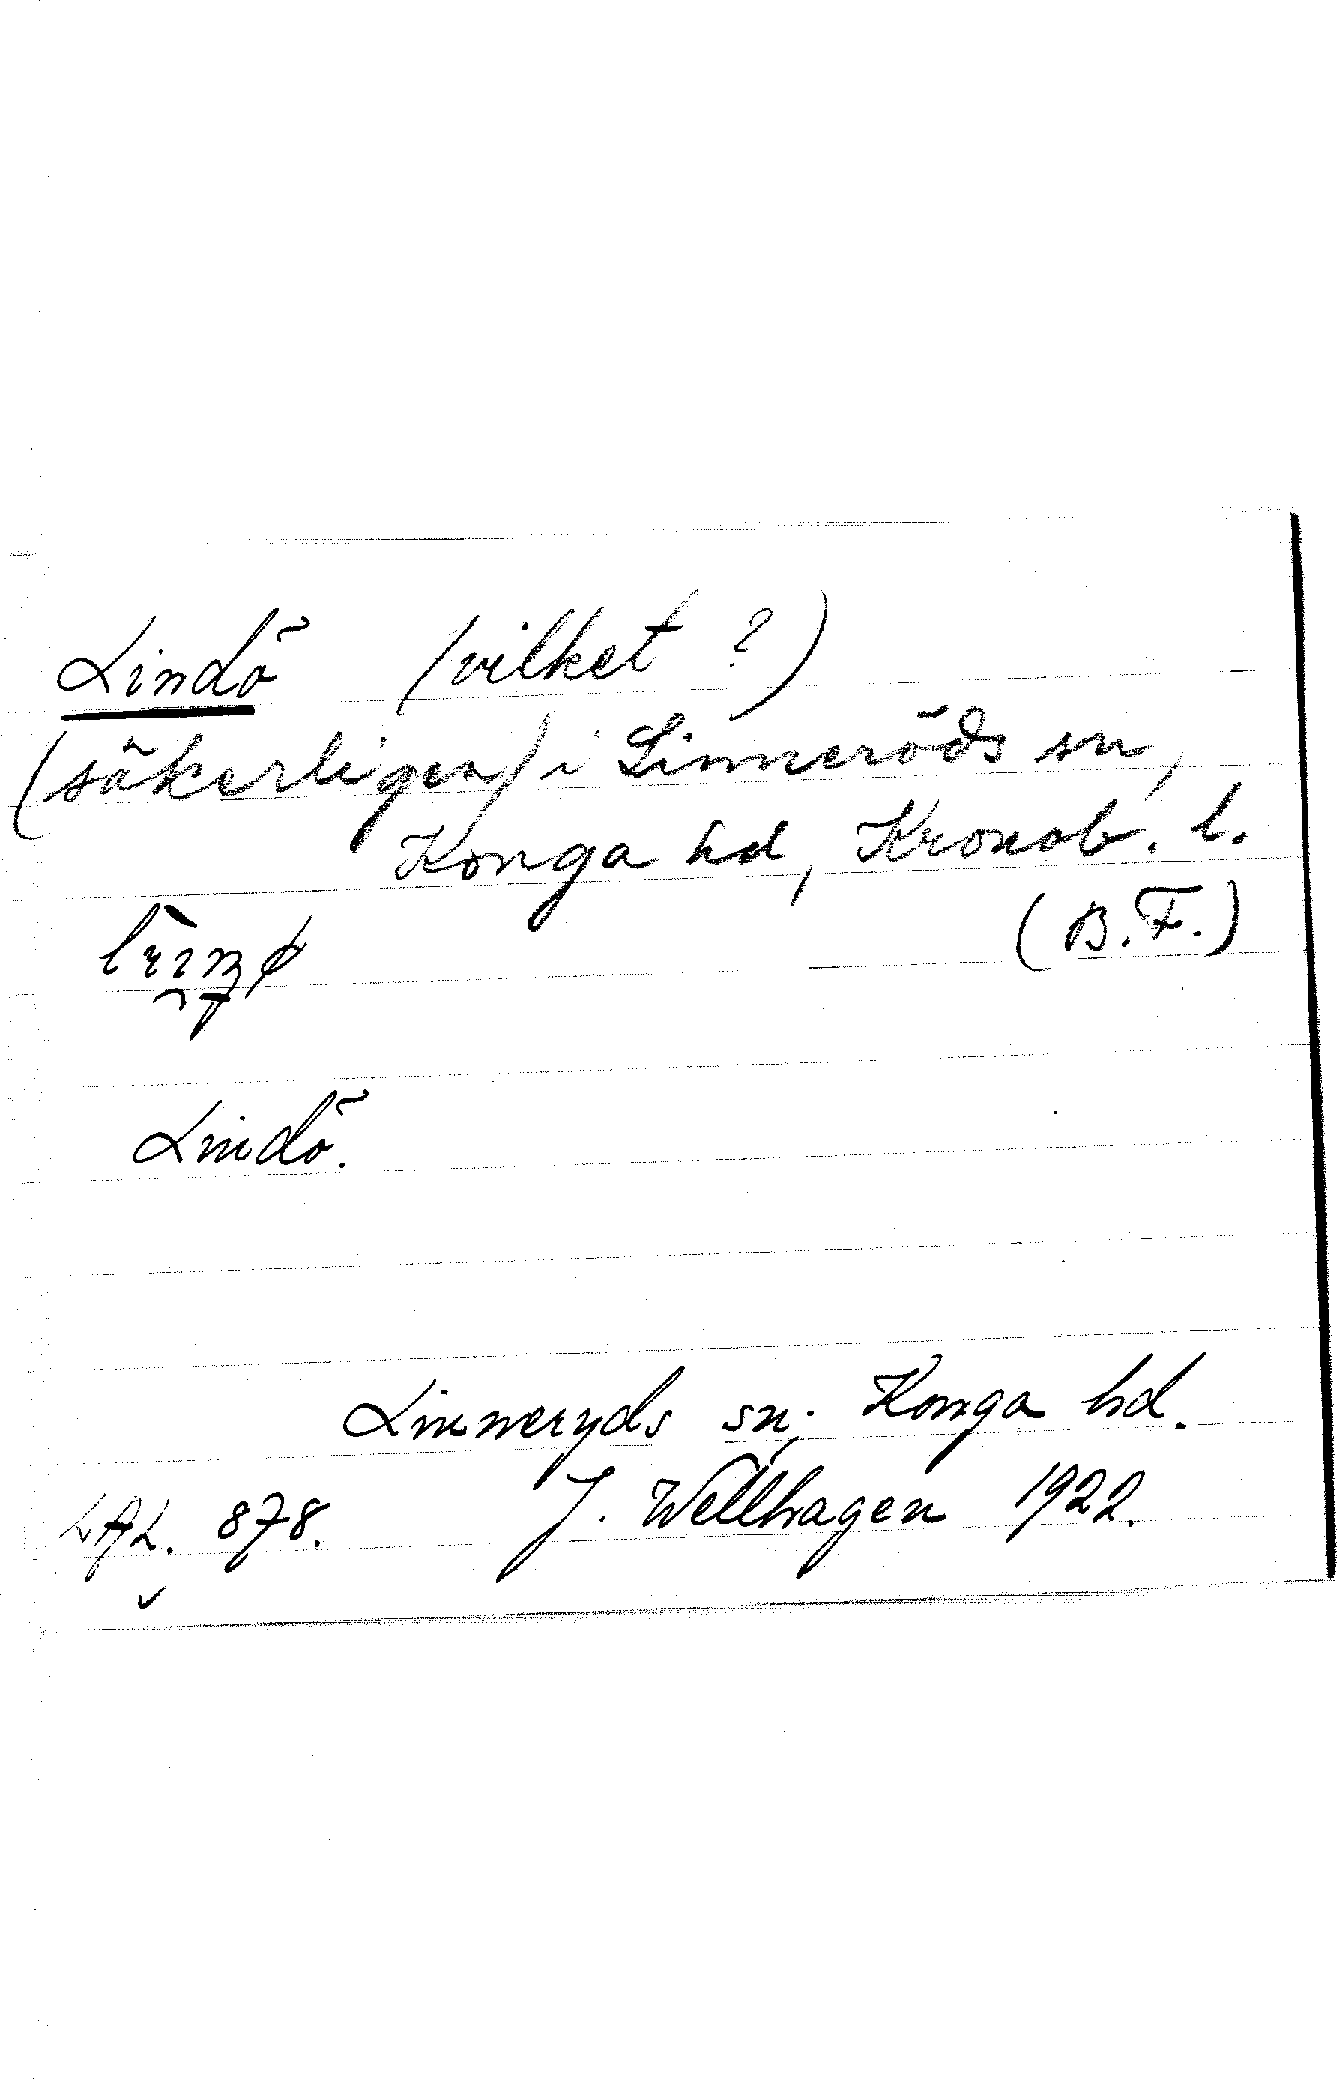 Lindö (vilket ?)
(säkerligen) i Linneröds sn,
Konga hd, Kronob. l.
(B.F.)
Lindö.
Linneryds sn. Konga hd.
LAL. 878. J. Wellhagen 1922.